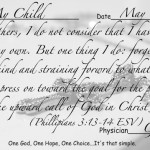 My Child Date May
thers, I do not consider that I hav
y own. But one thing I do: forge
hind and straining forward to what
press on toward the goal for the p
the upward call of God in Christ
(Phillipians 3:13-14 ESV)
Physician
One God, One Hope, One Choice...It's that simple.